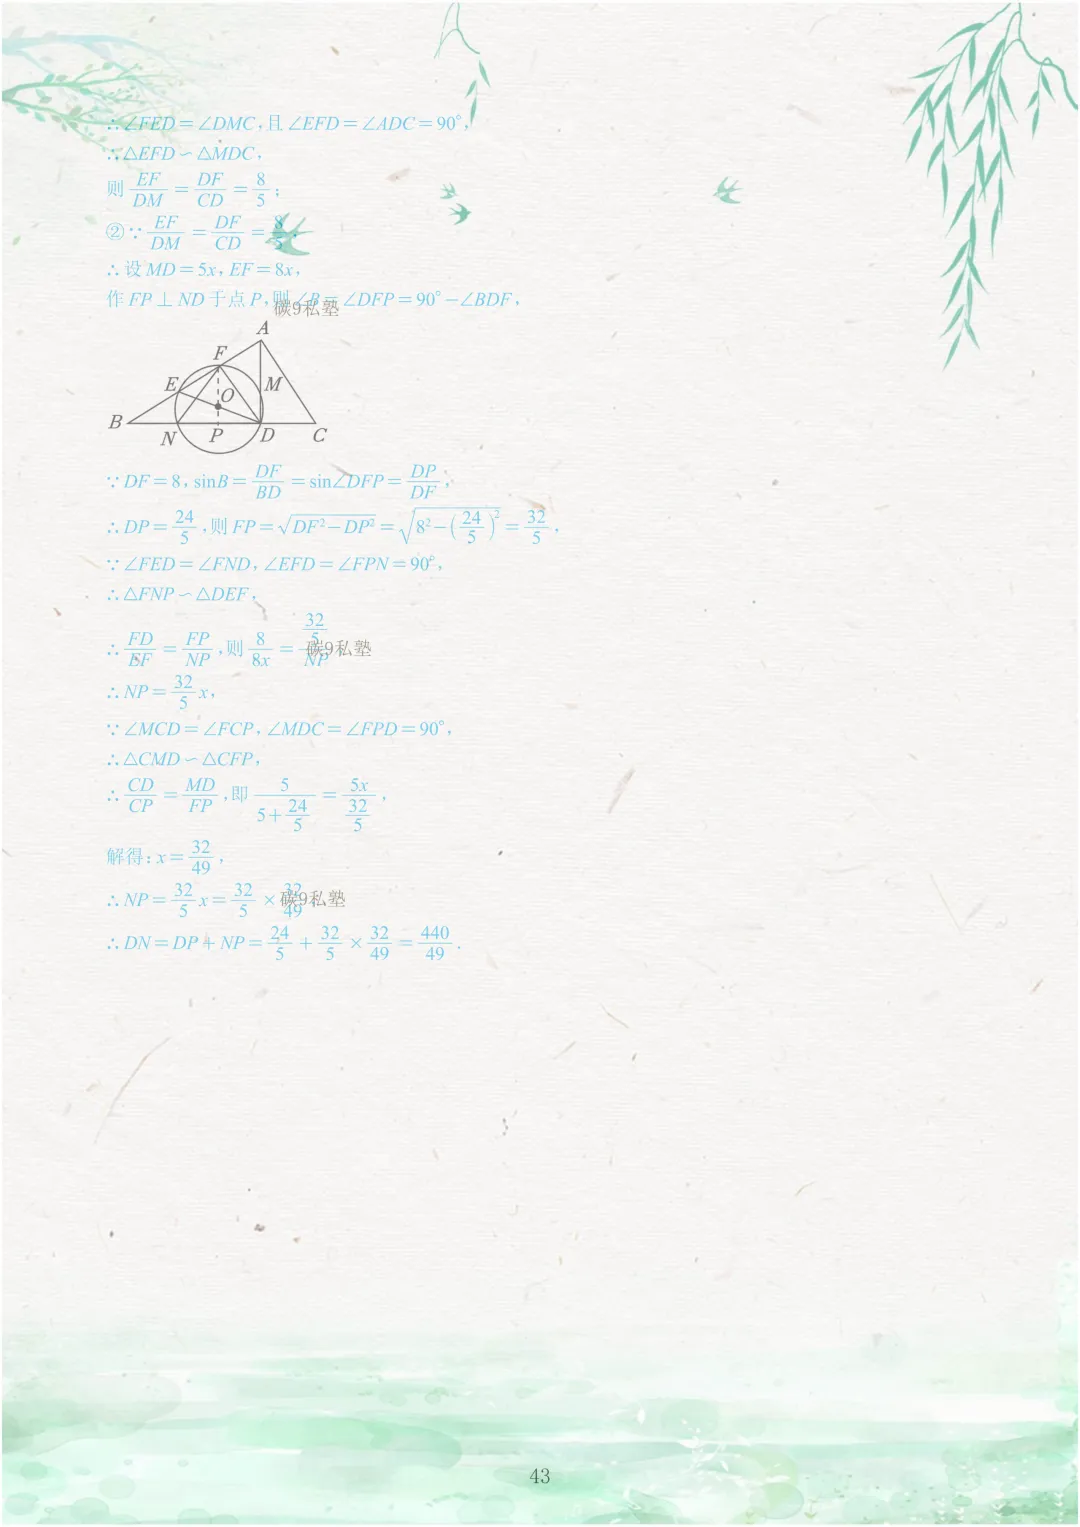 ∴∠FED=∠DMC,且∠EFD=∠ADC=90°,
∴△EFD∽△MDC,
则 EF/DM = DF/CD = 8/5 ;
②∵ EF/DM = DF/CD = 8/5 ,
∴设MD=5x,EF=8x,
作FP⊥ND于点P,则∠B=∠DFP=90°-∠BDF,
碳9私塾
A
F
E
M
O
B
N
P
D
C
∵DF=8,sinB= DF/BD =sin∠DFP= DP/DF ,
∴DP= 24/5 ,则FP=√(DF²-DP²)=√(8²-(24/5)²)= 32/5 ,
∵∠FED=∠FND,∠EFD=∠FPN=90°,
∴△FNP∽△DEF,
∴ FD/EF = FP/NP ,则 8/8x = (32/5)/NP ,
碳9私塾
∴NP= 32/5 x,
∵∠MCD=∠FCP,∠MDC=∠FPD=90°,
∴△CMD∽△CFP,
∴ CD/CP = MD/FP ,即 5/(5+24/5) = 5x/(32/5) ,
解得:x= 32/49 ,
∴NP= 32/5 x= 32/5 × 32/49 ,
碳9私塾
∴DN=DP+NP= 24/5 + 32/5 × 32/49 = 440/49 .
43